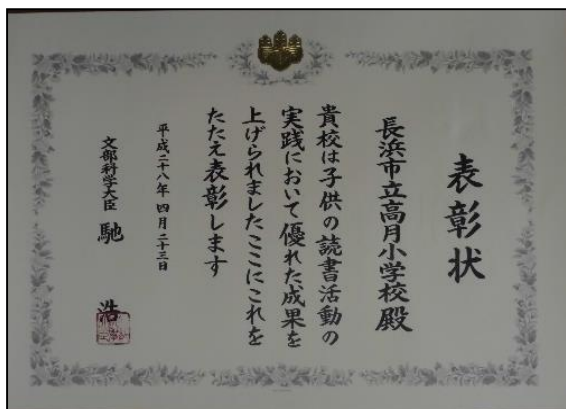 表彰状
長浜市立高月小学校殿
貴校は子供の読書活動の
実践において優れた成果を
上げられましたここにこれを
たたえ表彰します
平成二十八年四月二十三日
文部科学大臣 馳 浩